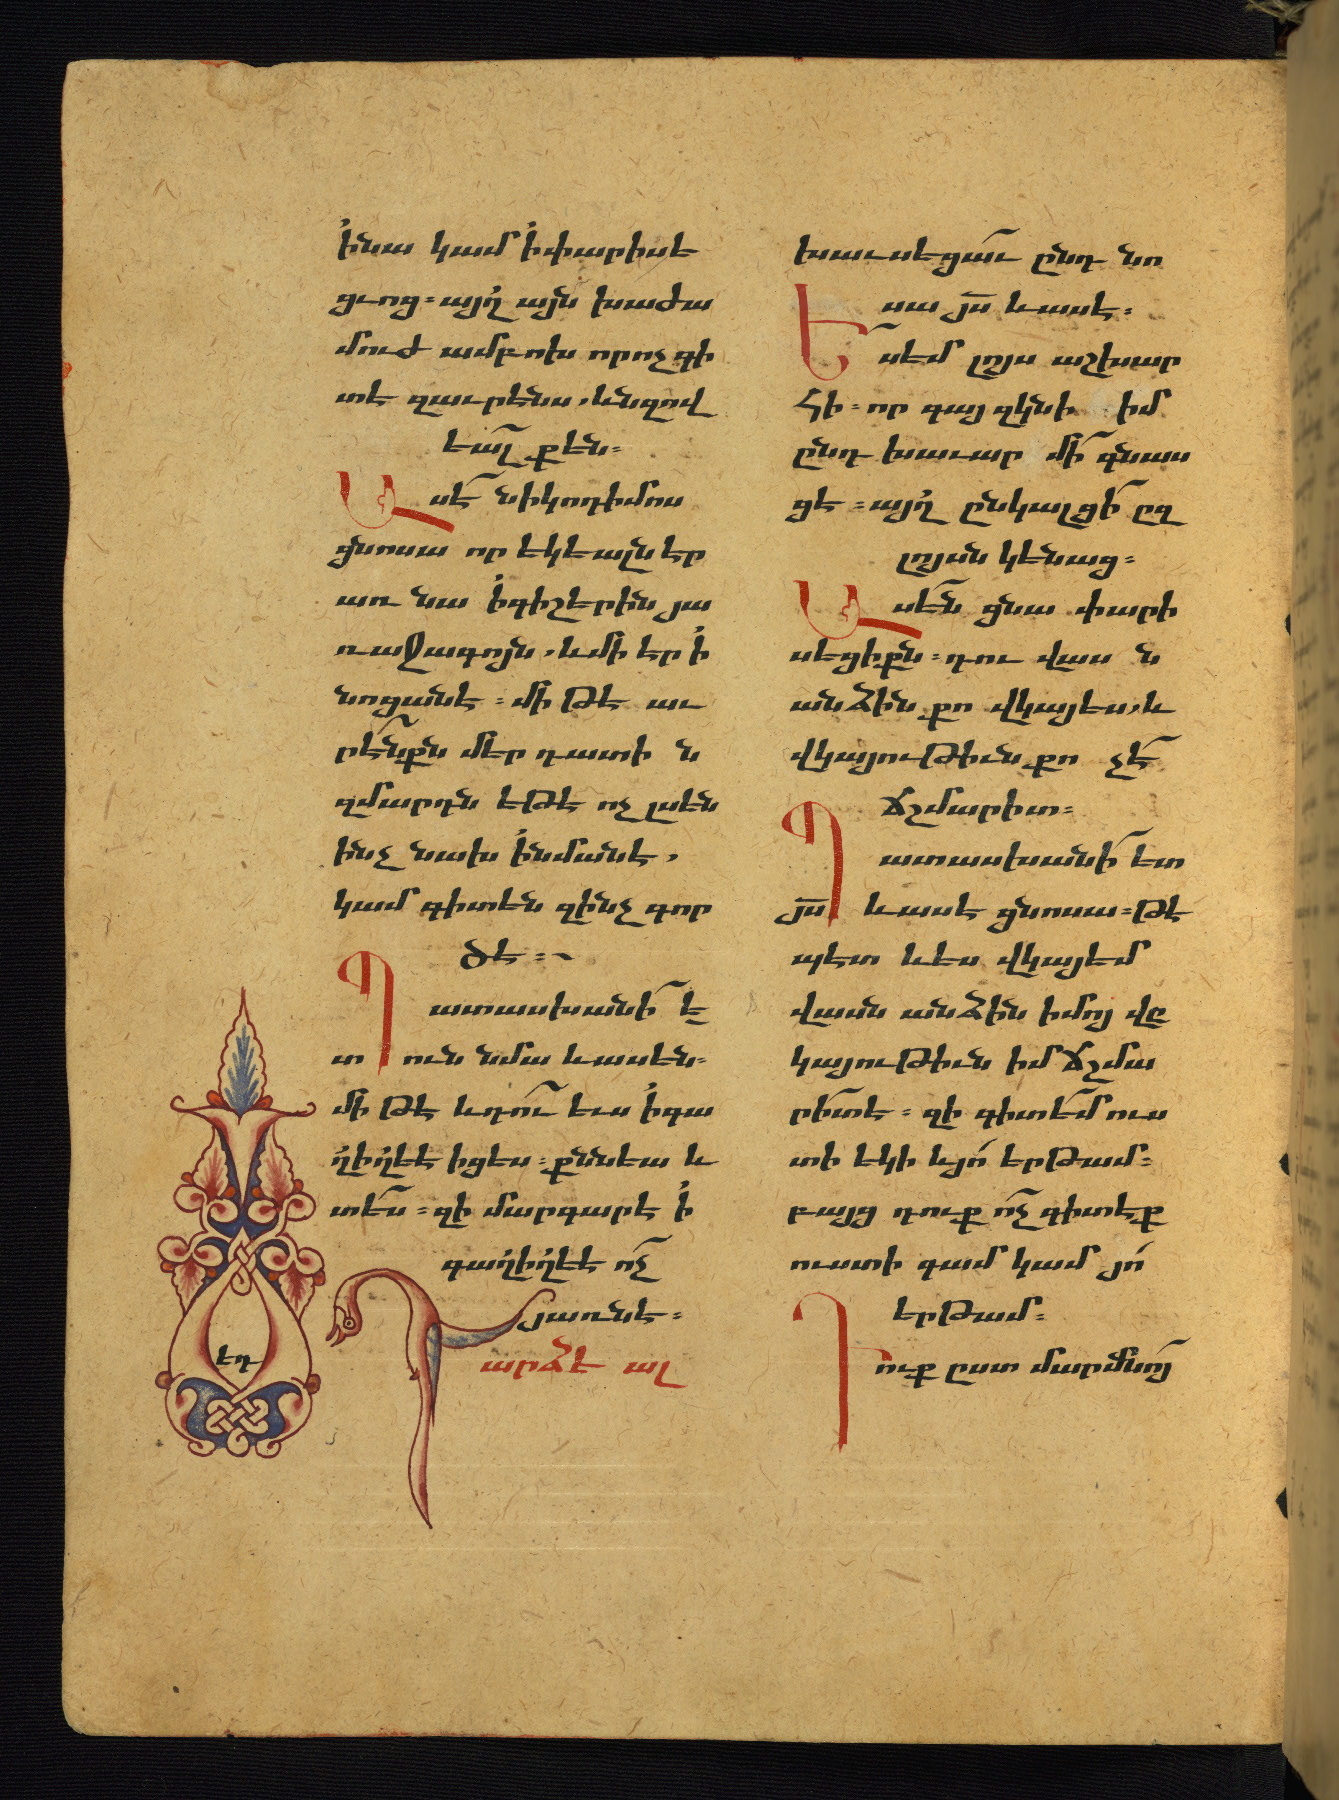 ի նա կամ ի փարիսե
ցւոց ։ այղ այն խաժա
մուժ ամբոխ որ ոչ գի
տե զաւրէնս , և նզով
եալ քեն ։
Ասէ նիկոդիմոս
ցնոսա որ եկեալն եր
առ նա ի գիշերին յա
ռաջագոյն , և մի եր ի
նոցանէ ։ մի թէ աւ
րէնքն մեր դատի ն
զմարդն եթէ ոչ լսեն
ինչ նախ ի նմանե ,
կամ գիտեն զինչ գոր
ծէ ։
Պատասխանի ե
տ ուն նմա և ասեն ։
մի թէ և դու ևս ի գա
ղիղեե իցես ։ քննեա և
տես ։ զի մարգարե ի
գաղիղեե ոչ
յառնե ։
Դարձե ալ
եդ
խաւսեցաւ ընդ նո
սա յս և ասէ ։
Ես եմ լոյս աշխար
հի ։ որ գայ զկնի իմ
ընդ խաւար մի գնաս
ցե ։ այղ ընկալցի ըզ
լոյսն կենաց ։
Ասեն ցնա փարի
սեցիքն ։ դու վաս ն
անձին քո վկայես , և
վկայութիւն քո չէ
ճշմարիտ ։
Պատասխանի ետ
յս և ասե ցնոսա ։ թէ
պետ և ես վկայեմ
վասն անձին իմոյ վը
կայութիւն իմ ճշմա
րիտե ։ զի գիտեմ ուս
տի եկի և յո երթամ ։
բայց դուք ոչ գիտեք
ուստի գամ կամ յո
երթամ ։
Դուք ըստ մարմնոյ